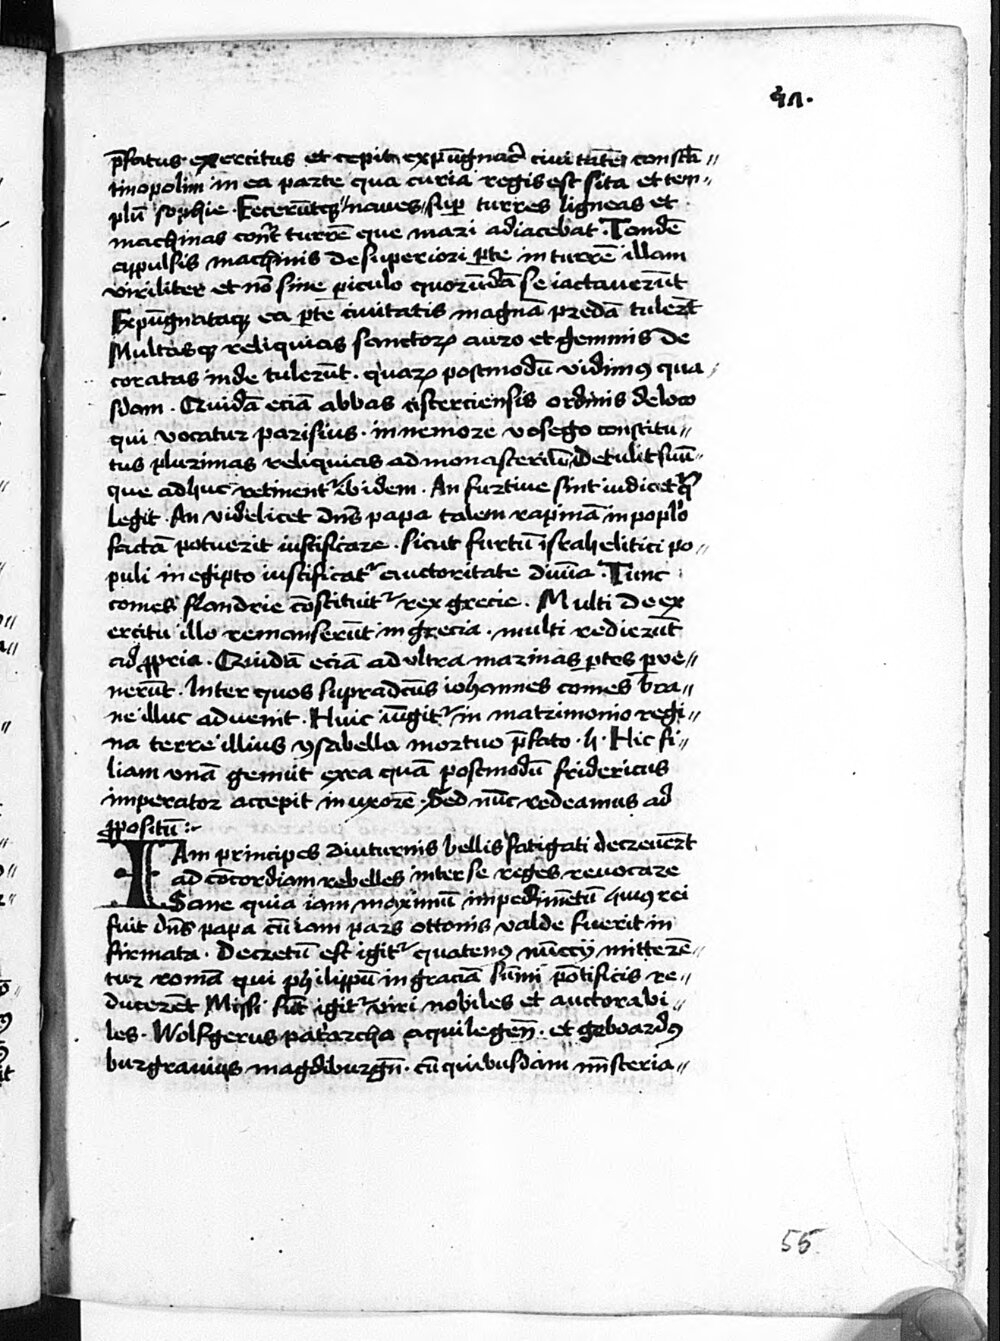 p̄fatus exercitus et cepit exp̄ugnac̄ ciuitatē constā//
tinopolim in ea parte qua curia regis est sita et tem//
plū sophie. Fecerūtq; naues sup turres ligneas et
machinas cont̄ turrē que mari adiacebat. Tandē
appulsis machinis de superiori pte in turrē illam
viriliter et nō sine piculo quorundā se iactauerūt
Exp̄ugnataq; ea pte ciuitatis magnā predā tulert̄
Multasq; reliquias sanctoꝝ auro et gemmis de
coratas inde tulerūt. quaꝝ postmodū vidimꝰ qua/
sdam. Quidā eciā abbas cisterciensis ordinis de loco
qui vocatur parisius. in nemore vosego constitu//
tus plurimas reliquias ad monasteriū detulit suū//
que adhuc retinent᷑ ibidem. An furtiue sint iudicet q
legit. An videlicet dn̄s papa talem rapinā in poplo
factā potuerit iustificare. sicut furtū israhelitici po//
puli in egipto iustificat᷑ auctoritate diuīa. Tunc
comes flandrie cōstituit᷑ rex grecie. Multi de ex
ercitu illo remanserūt in grecia. multi redierūt
ad ꝓpria. Quidā eciā ad vltra marinas ptes pue//
nerūt. Inter quos supradc̄us iohannes comes bra//
ne illuc aduenit. Huic iūgit᷑ in matrimonio regi//
na terre illius ysabella mortuo p̄fato. h. Hic fi//
liam vnā genuit ex ea quā postmodū fridericus
imperator accepit in uxorē. Sed nūc redeamus ad
ꝓpositū:~
IAm principes diuturnis bellis fatigati decreuert̄
ad cōcordiam rebelles inter se reges reuocare
Sane quia iam maximū impedimētū huiꝰ rei
fuit dn̄s papa cū iam pars ottonis valde fuerit in
firmata. Decretū est igit᷑ quatenꝰ nūccij mitterē//
tur romā qui philippū in graciā sūmi pōtificis re//
ducerēt. Missi sūt igit᷑ viri nobiles et auctorabi//
les. Wolfgerus pat̄archa aquilegen̄. et geboardꝰ
burgrauius magdiburgn̄. cū quibusdam mīsteria//
55